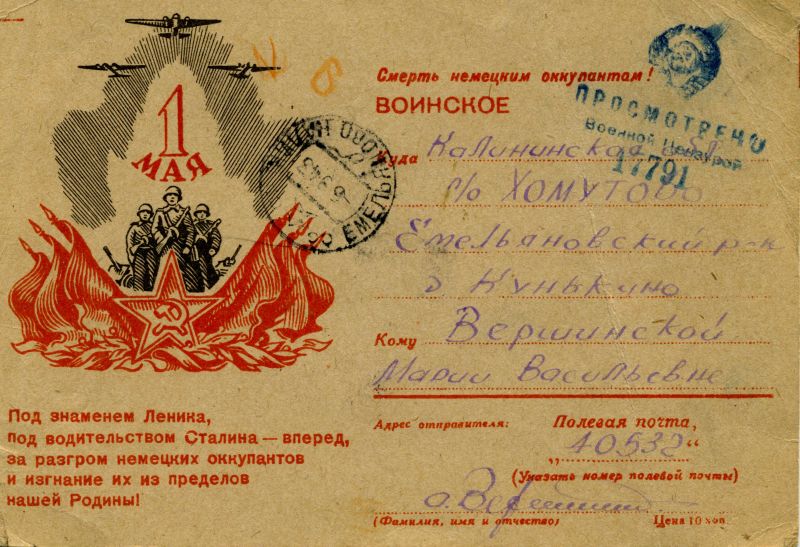 1
МАЯ
Под знаменем Ленина,
под водительством Сталина — вперед,
за разгром немецких оккупантов
и изгнание их из пределов
нашей Родины!
Смерть немецким оккупантам!
ВОИНСКОЕ
ПРОСМОТРЕНО
Военной Цензурой
17791
Куда Калининская обл
п/о ХОМУТОВО
Емельяновский р-н
д Кунькино
Кому Вершинской
Марии Васильевне
Адрес отправителя: Полевая почта,
„40532“
(Указать номер полевой почты)
(Фамилия, имя и отчество) Цена 10 коп.